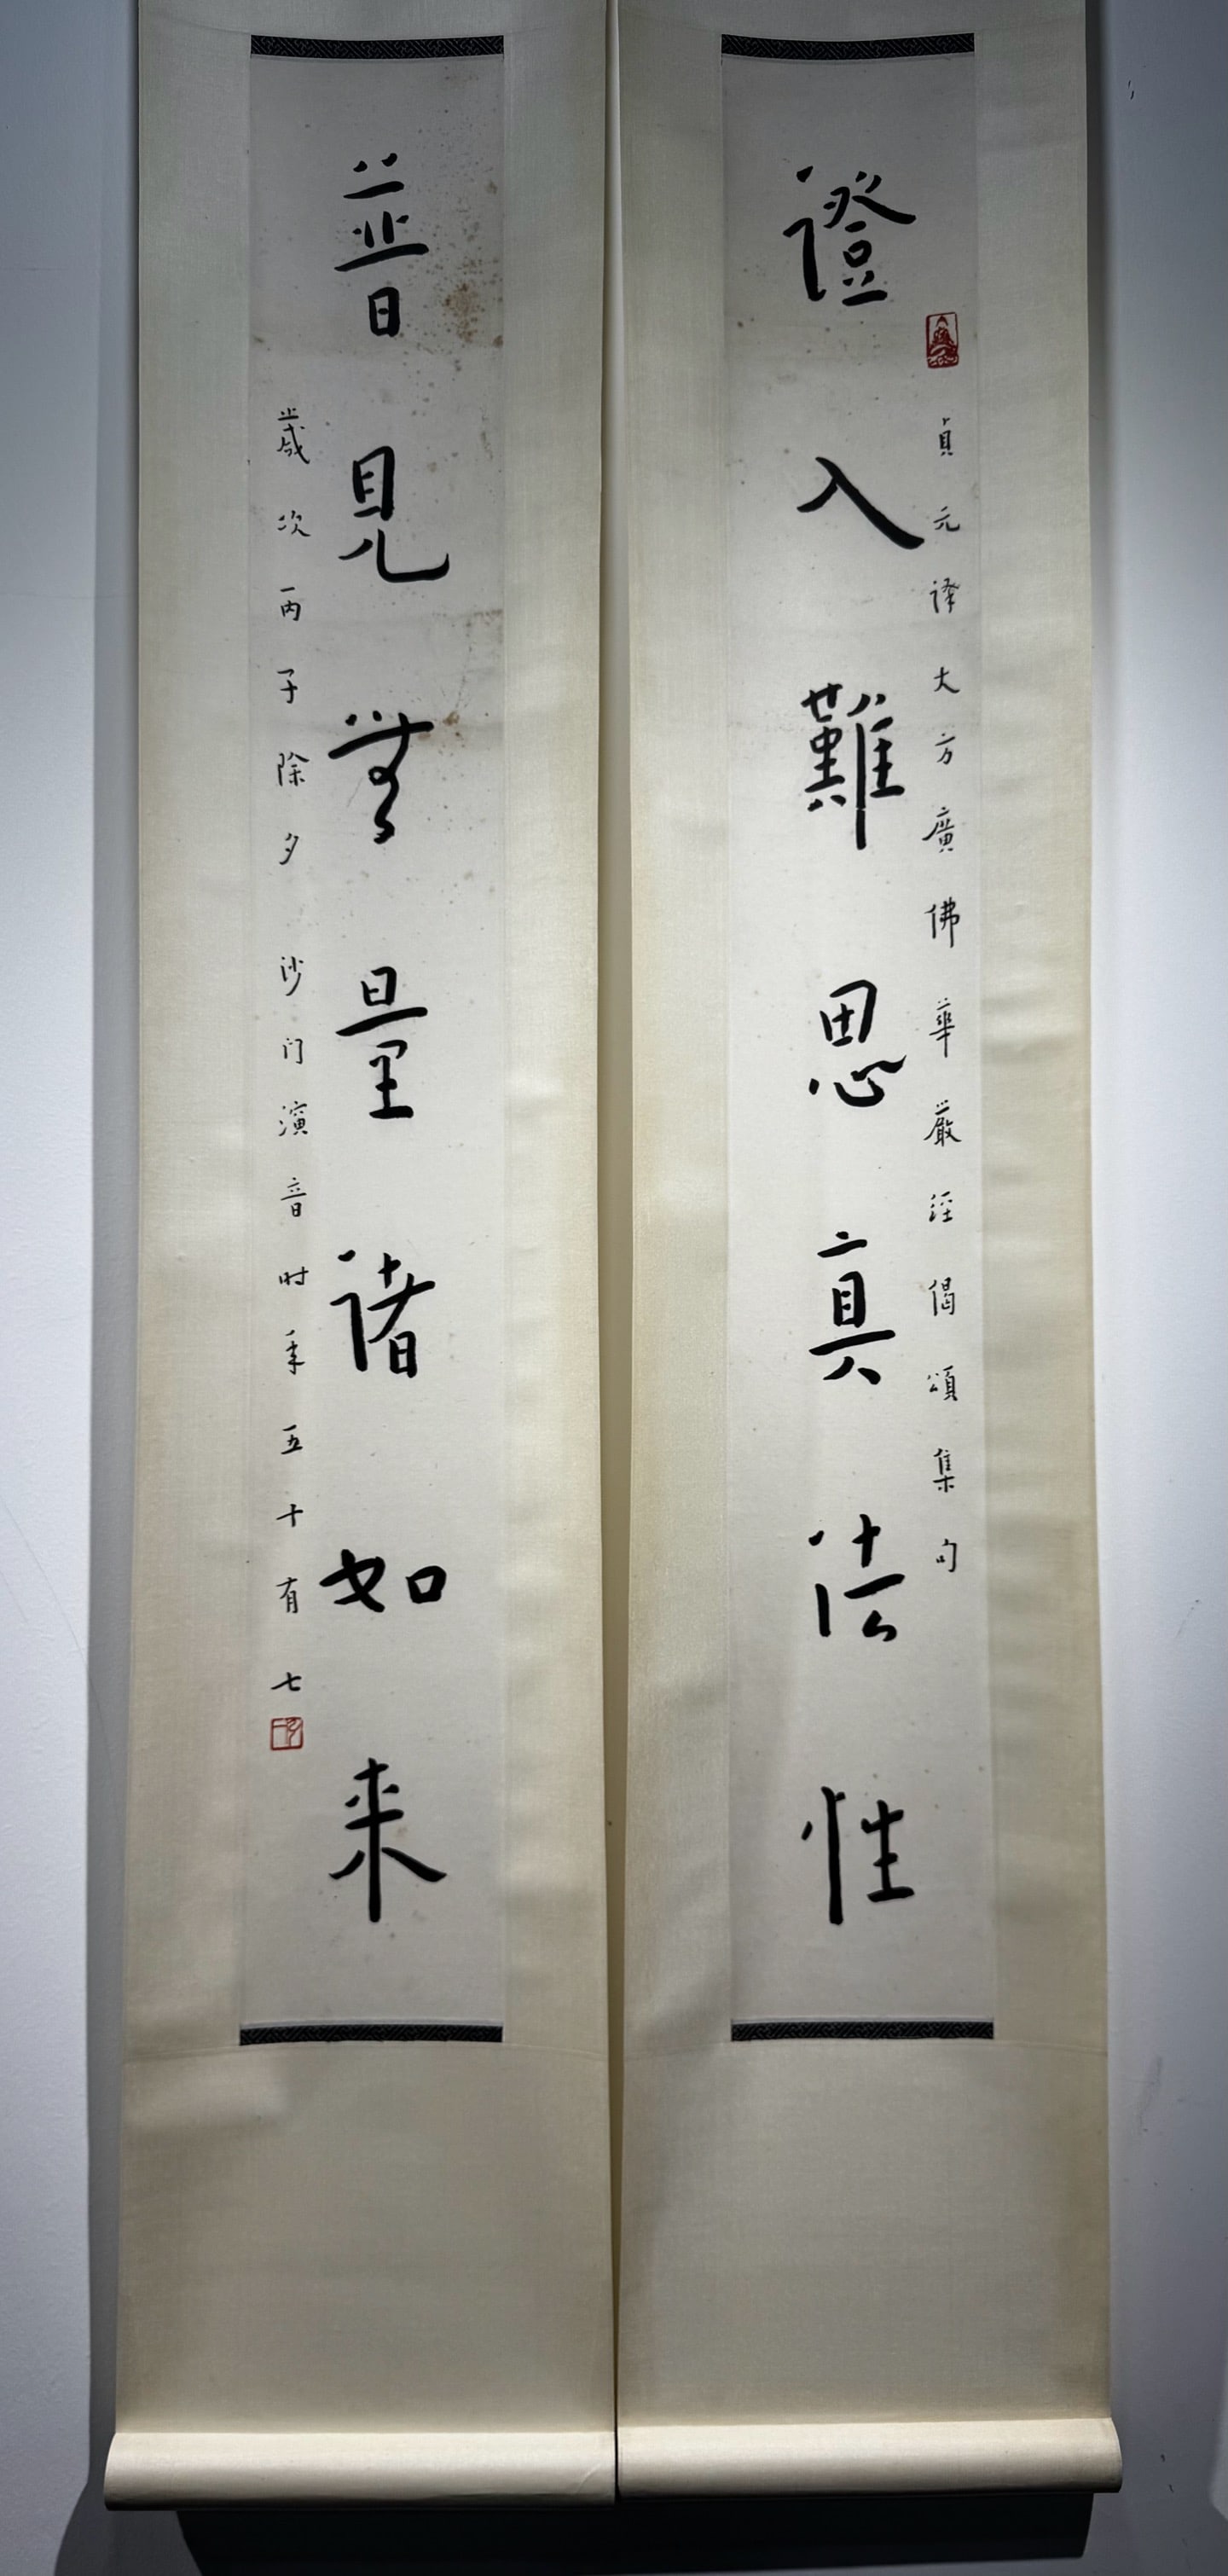 證入難思真法性
貞元译大方廣佛華嚴経偈頌集句
普見無量諸如来
歲次丙子除夕沙门演音时年五十有七